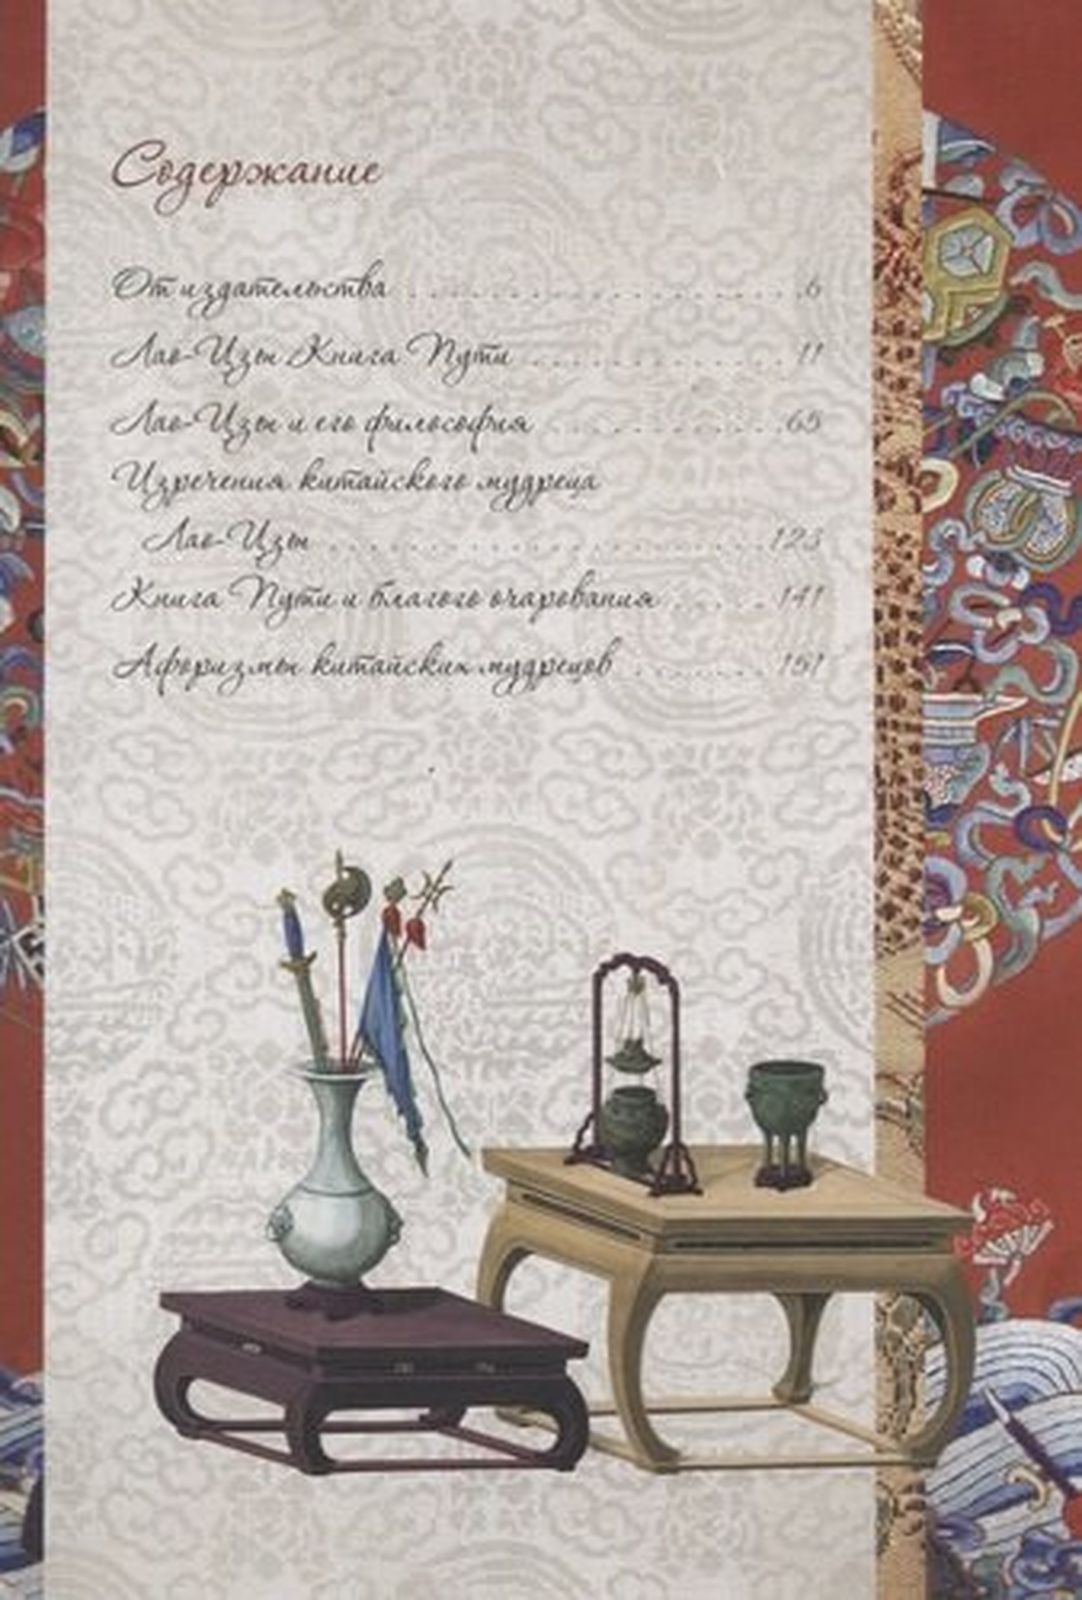 Содержание
От издательства 6
Лао-Цзы Книга Пути 11
Лао-Цзы и его философия 65
Изречения китайского мудреца
Лао-Цзы 123
Книга Пути и благого очарования 141
Афоризмы китайских мудрецов 151